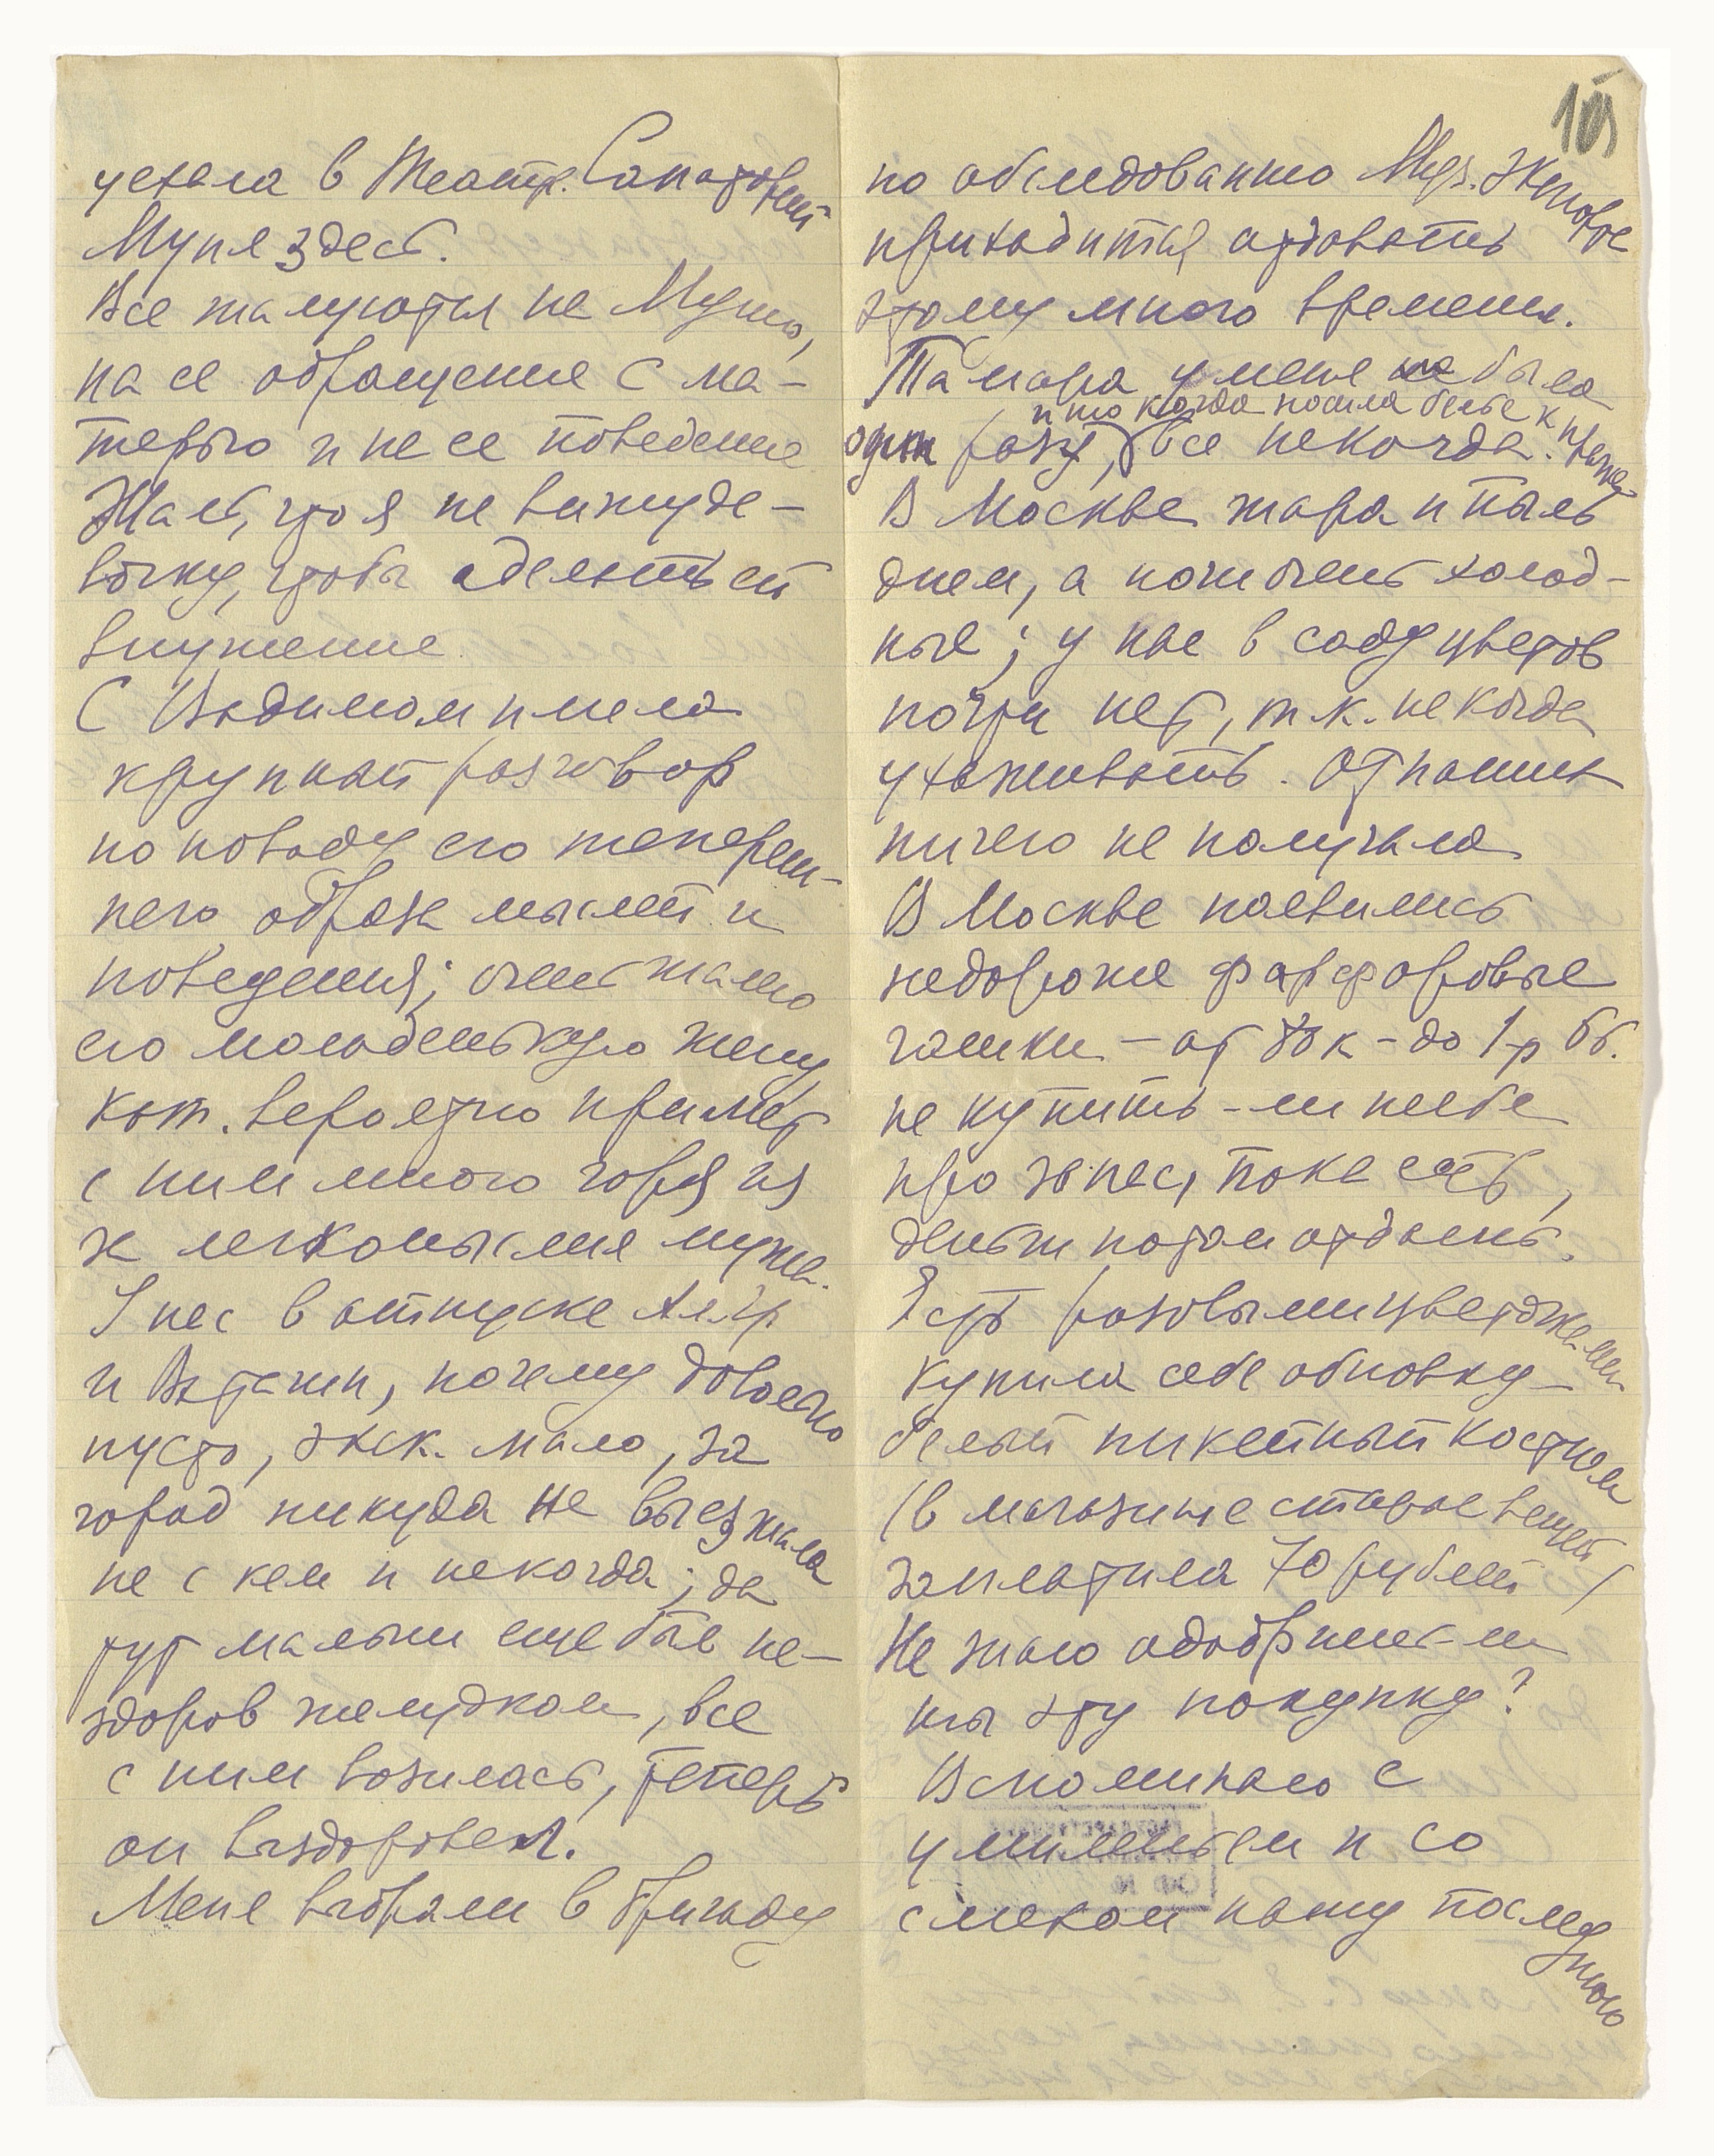 уехала в Театр. Санаторий
Муля здесь.
Все жалуются на Мулю,
на ее обращение с ма-
терью и на ее поведение
Жаль, что я не вижу де-
вочку, чтобы сделать ей
внушение.
С Вадимом имела
крупный разговор
по поводу его тепереш-
него образа мыслей и
поведения; очень жалко
его молоденькую жену
кот. вероятно примет
с ним много горя из
за легкомыслия мужа.
У нас в отпуске
и почему довольно
пусто, экск. мало, за
город никуда не выезжала
не с кем и некогда; да
тут малыш еще был не-
здоров желудком, все
с ним возилась, теперь
он выздоровел.
Меня выбрали в бригаду
101
по обследованию Муз.
приходится отдавать
этому много времени.
Тамара у меня была
и то когда носила белье к
один раз, все некогда.
В Москве жара и пыль
днем, а ночи очень холод-
ные; у нас в саду цветов
почти нет, т.к. некогда
ухаживать. От
ничего не получала
В Москве появились
недорогие фарфоровые
чашки – от 80 к – до 1 р
не купить-ли тебе
про запас, пока есть,
деньги потом отдашь.
Есть розовыми цветочками
Купила себе обновку –
белый пикейный костюм
(в магазине старых вещей)
заплатила 70 рублей
Не знаю одобришь-ли
ты эту покупку?
Вспоминаю с
умилением и со
смехом нашу последнюю